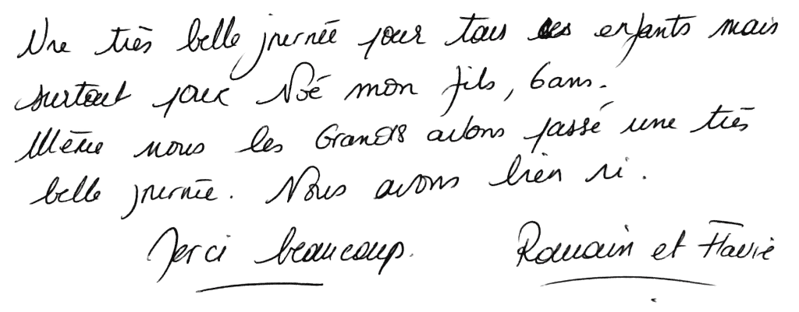 Une très belle journée pour tous les enfants mais
surtout pour Noé mon fils, 6 ans.
Même nous les Grands avons passé une très
belle journée. Nous avons bien ri.
Merci beaucoup. Romain et Flavie